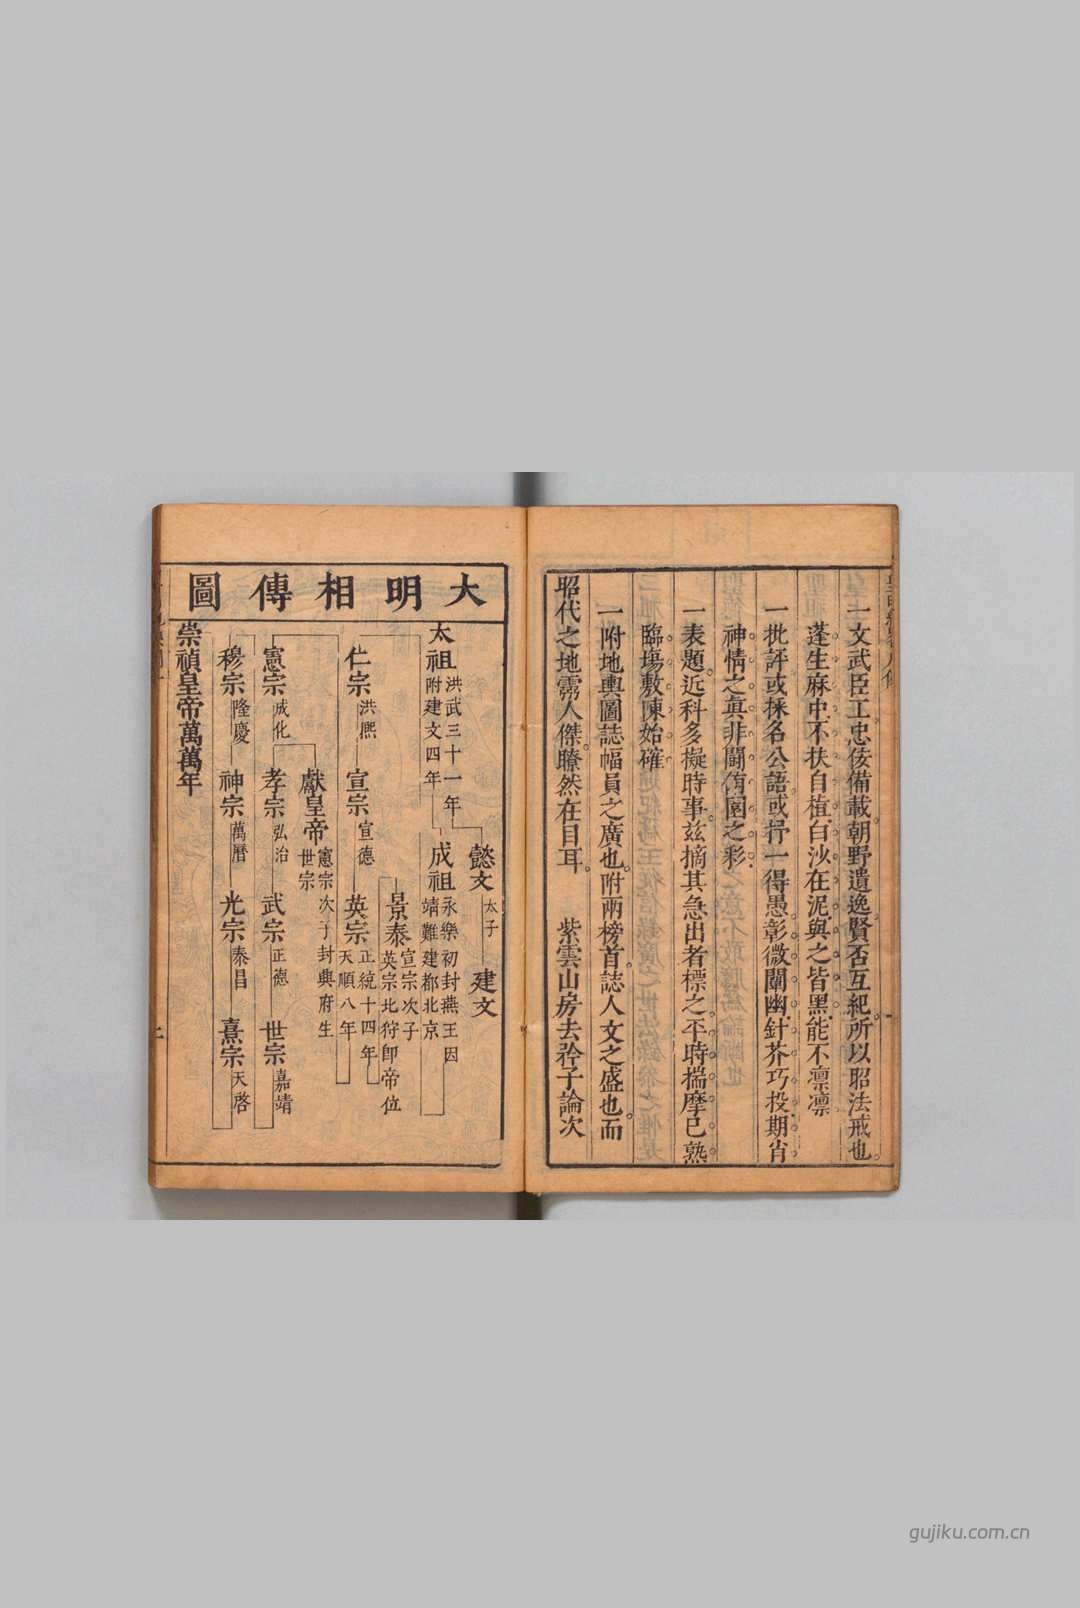 一文武臣工忠佞備載朝野遺逸賢否互紀所以昭法戒也
蓬生麻中不扶自植白沙在泥與之皆黑能不凛凛
一批評或採名公語或抒一得愚彰微闡幽針芥巧投期肖
神情之眞非鬪侑園之彩
一表題近科多擬時事茲摘其急出者標之平時揣摩已熟
臨塲敷陳始確
一附地輿圖誌幅員之廣也附兩榜首誌人文之盛也而
昭代之地靈人傑瞭然在目耳 紫雲山房去矜子論次
大明相傳圖
懿文太子 建文
太祖洪武三十一年附建文四年 成祖永樂初封燕王因靖難建都北京
仁宗洪熙 宣宗宣德 英宗正統十四年天順八年
景泰宣宗次子英宗北狩卽帝位
獻皇帝憲宗次子封興府生世宗
憲宗成化 孝宗弘治 武宗正德 世宗嘉靖
穆宗隆慶 神宗萬曆 光宗泰昌 熹宗天啓
崇禎皇帝萬萬年
gujiku.com.cn